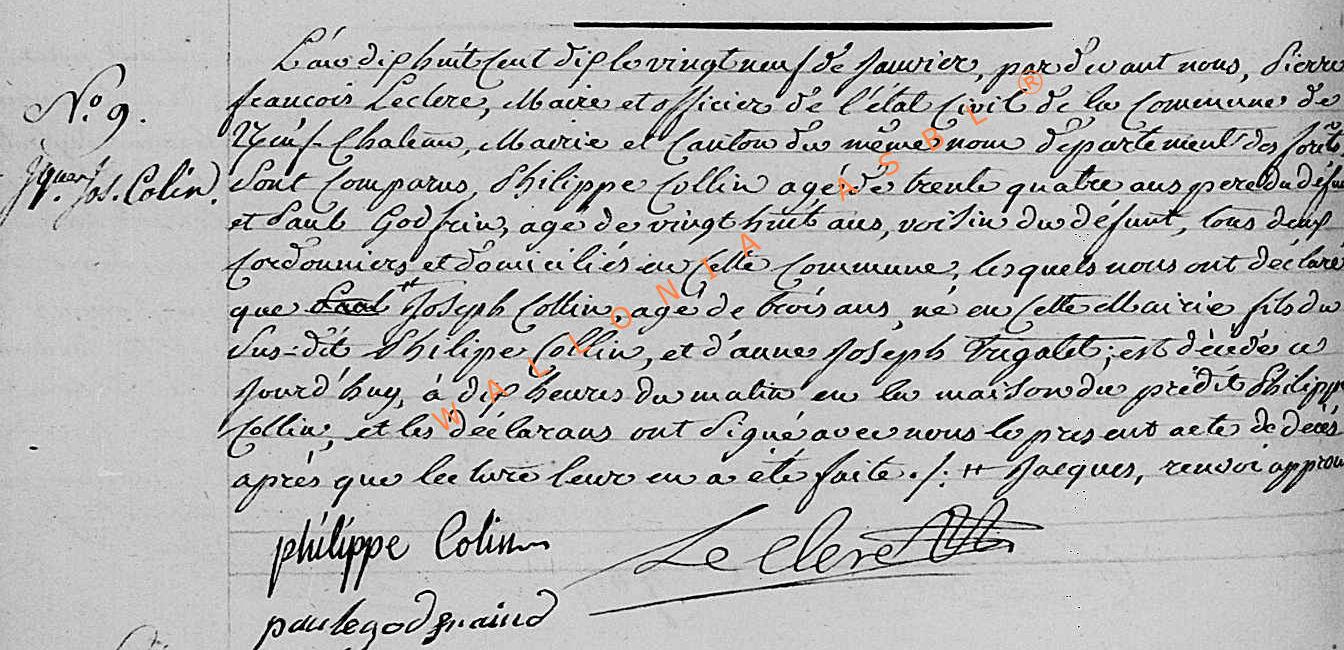 No. 9.
Jqu. Jos. Colin.
L'an dix huit cent dix le vingt neuf de Janvier, par devant nous, Pierre
françois Leclerc, Maire et officier de l'état Civil de la Commune de
Neuf-Chateau, Mairie et Canton du même nom département des forêts
Sont Comparus, Philippe Collin agé de trente quatre ans pere du défu
et Paul Godfrin, agé de vingt huit ans, voisin du défunt, tous deux
Cordonniers et domiciliés en Cette Commune, lesquels nous ont déclaré
que Paul # Joseph Collin, agé de trois ans, né en Cette Mairie fils du
Sus-dit Philipe Collin, et d'anne Joseph Frigalet; est décédé ce
Jourd'huy, à dix heures du matin en la maison du prédit Philipp
Collin, et les déclarans ont Signé avec nous le present acte de decès
après que lecture leur en a été faite ./. # Jacques, renvoi approu
philippe Colin
LeClerc
paule godfraind
WALLONIA ASBL ®